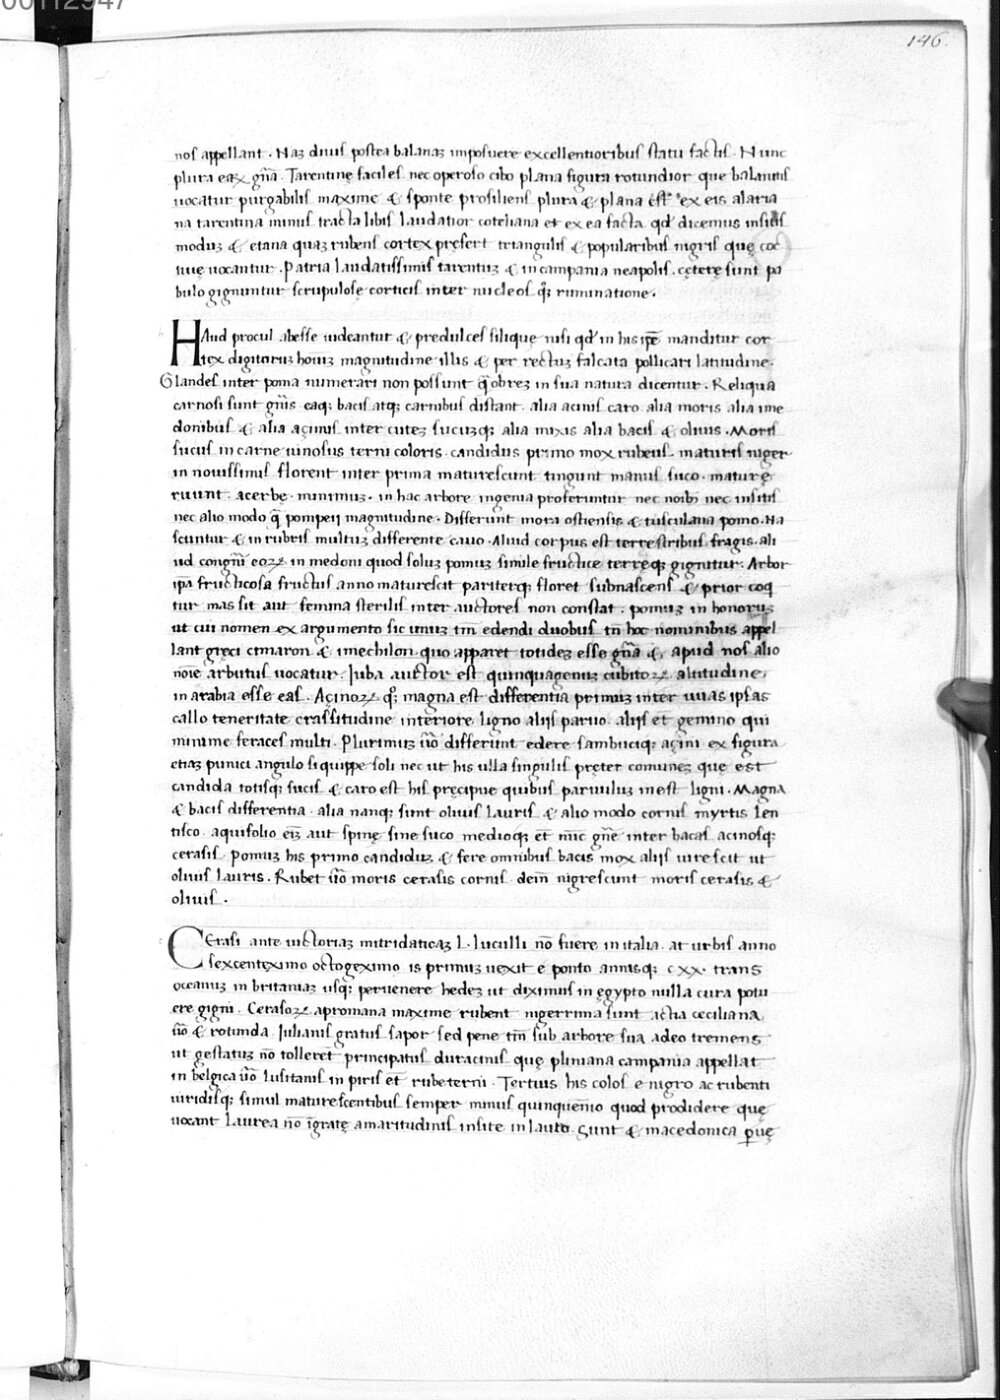 00112947
146.
nos appellant . Naꝫ diuis postea balanaꝫ imposuere excellentioribus statu factis . Nunc
plura eaꝝ gñā . Tarentinę faciles nec operoso cibo plana figura rotundior que balanitis
uocatur purgabilis maxime & sponte prosiliens plura & plana est ex eis alaria
na tarentina minus tracta libis laudatior coteliana et ex ea facta qd' dicemus insitis
modus & etana quaꝫ rubens cortex prefert triangulis & popularibus nigris quę coc
tiuę uocantur . Patria laudatissimis tarentuꝫ & in campania neapolis . cęterę sunt pa
bulo gignuntur scrupulosę corticis inter nucleos qꝫ ruminatione .
HAud procul abesse uideantur & predulces silique nisi qd' in his ipē manditur cor
tex digitoruꝫ houiꝫ magnitudine illis & per rectuꝫ falcata pollicari latitudine .
Glandes inter poma numerari non possunt q̄obreꝫ in sua natura dicentur . Reliqua
carnosi sunt gñis eaqꝫ bacis atqꝫ carnibus distant . alia acinis caro alia moris alia une
donibus & alia açinus inter cuteꝫ sucuꝫqꝫ alia mixis alia bacis & oliuis . Moris
sucus in carne uinosus terni coloris . candidus primo mox rubens . maturis niger
in nouissimis florent inter prima maturescunt tingunt manus suco . maturę
ruunt . acerbę . minimuꝫ . in hac arbore ingenia proferuntur nec noib; nec insitis
nec alio modo q̄ pompeij magnitudine . Differunt mora ostiensis & tusculana pomo . Na
scuntur & in rubris multuꝫ differente cauo . Aliud corpus est terrestribus fragis . ali
ud congñi eoꝝ in medoni quod soluꝫ pomuꝫ simile fructice terręqꝫ gignitur . Arbor
ip̄a fructicosa fructus anno maturescit pariterqꝫ floret subnascens & prior coq
tur mas sit aut femina sterilis inter auctores non constat . pomuꝫ in honoruꝫ
ut cui nomen ex argumento sic unuꝫ tm̄ edendi duobus tn̄ hoc nominibus appel
lant gręci cimaron & imechilon quo apparet totideꝫ esse gñā & apud nos alio
noīe arbutus uocatur . Juba auctor est quinquagenuꝫ cubitoꝝ altitudine .
in arabia esse eas . Açinoꝝ qꝫ magna est differentia primuꝫ inter uuas ipsas
callo teneritate crassitudine interiore ligno alijs paruo . alijs et gemino qui
minime feraces multi . Plurimuꝫ ūo differunt edere sambuciqꝫ açini ex figura
etiaꝫ punici angulo si quippe soli nec ut his ulla singulis pręter comuneꝫ quę est
candida totisqꝫ sucis & caro est his pręcipue quibus paruulus inest ligni . Magna
& bacis differentia . alia nanqꝫ sunt oliuis lauris & alio modo cornis myrtis len
tisco . aquifolio eīꝫ aut spinę sine suco medioqꝫ et nūc gñē inter bacas acinosqꝫ
cerasis . Pomuꝫ his primo candiduꝫ & fere omnibus bacis mox alijs uirescit ut
oliuis lauris . Rubet ūo moris cerasis cornis . dein̄ nigrescunt moris cerasis &
oliuis .
CErasi ante uictoriaꝫ mitridaticaꝫ L . luculli nō fuere in italia . at urbis anno
sexcenteximo octogeximo is primuꝫ uexit e ponto annisqꝫ cxx . trans
oceanuꝫ in britaniaꝫ usqꝫ peruenere hedeꝫ ut diximus in ęgypto nulla cura potu
ere gigni . Cerasoꝝ apromana maxime rubent nigerrima sunt actia ceciliana
ūo & rotunda Julianis gratus sapor sed pene tm̄ sub arbore sua adeo tremens
ut gestatuꝫ nō tolleret principatus duracinis quę pliniana campania appellat
in belgica ūo lusitanis in piris et rube terni . Tertius his colos e nigro ac rubenti
uiridisqꝫ simul maturescentibus semper minus quinquen̄io quod prodidere quę
uocant laurea nō īgratę amaritudinis insite in lauro . sunt & macedonica ꝑuę